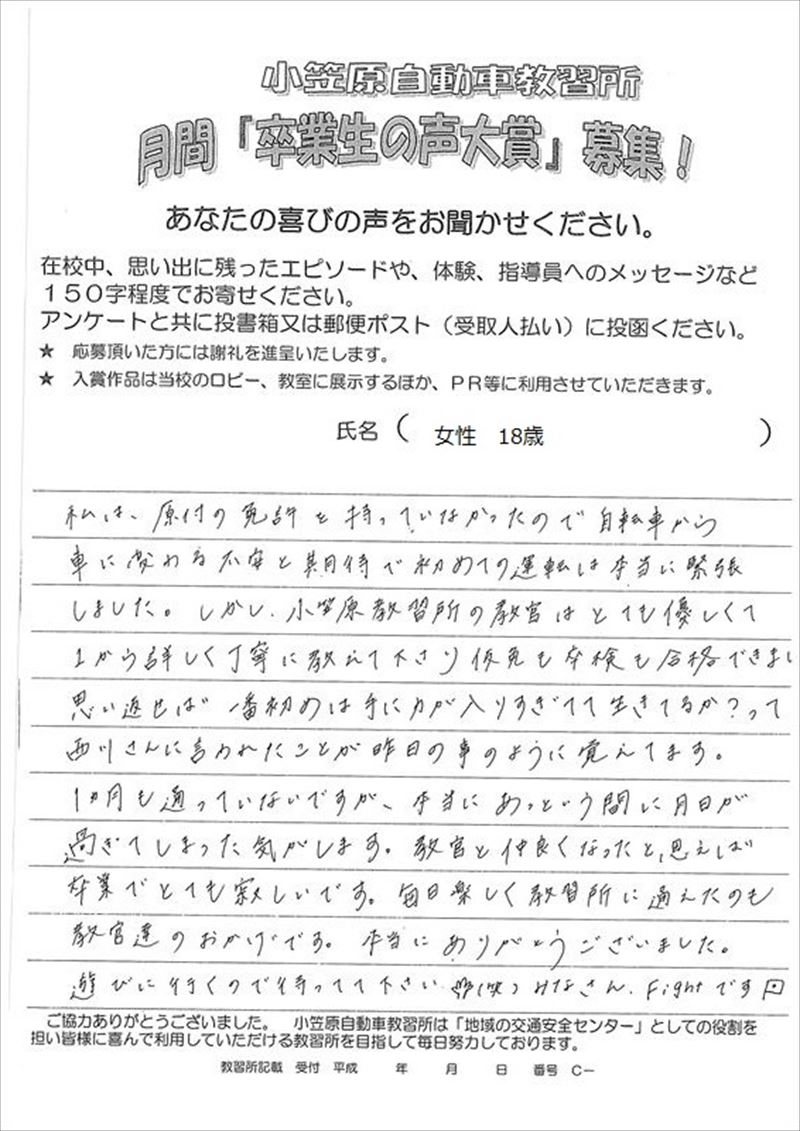 小笠原自動車教習所
月間「卒業生の声大賞」募集!
あなたの喜びの声をお聞かせください。
在校中、思い出に残ったエピソードや、体験、指導員へのメッセージなど
150字程度でお寄せください。
アンケートと共に投書箱又は郵便ポスト(受取人払い)に投函ください。
★ 応募頂いた方には謝礼を進呈いたします。
★ 入賞作品は当校のロビー、教室に展示するほか、PR等に利用させていただきます。
氏名 ( 女性 18歳 )
私は、原付の免許を持っていなかったので自転車から
車に変わる不安と期待で初めての運転は本当に緊張
しました。しかし、小笠原教習所の教官はとても優しくて
1から詳しく丁寧に教えて下さり仮免も卒検も合格できまし
思い返せば一番初めは手に力が入りすぎてて生きてるか?って
西川さんに言われたことが昨日の事のように覚えてます。
1ヵ月も通っていないですが、本当にあっという間に月日が
過ぎてしまった気がします。教官と仲良くなったと思えば
卒業でとても寂しいです。毎日楽しく教習所に通えたのも
教官達のおかげです。本当にありがとうございました。
遊びに行くので待ってて下さい (笑) みなさん、Fightです
ご協力ありがとうございました。 小笠原自動車教習所は「地域の交通安全センター」としての役割を
担い皆様に喜んで利用していただける教習所を目指して毎日努力しております。
教習所記載 受付 平成 年 月 日 番号 C-